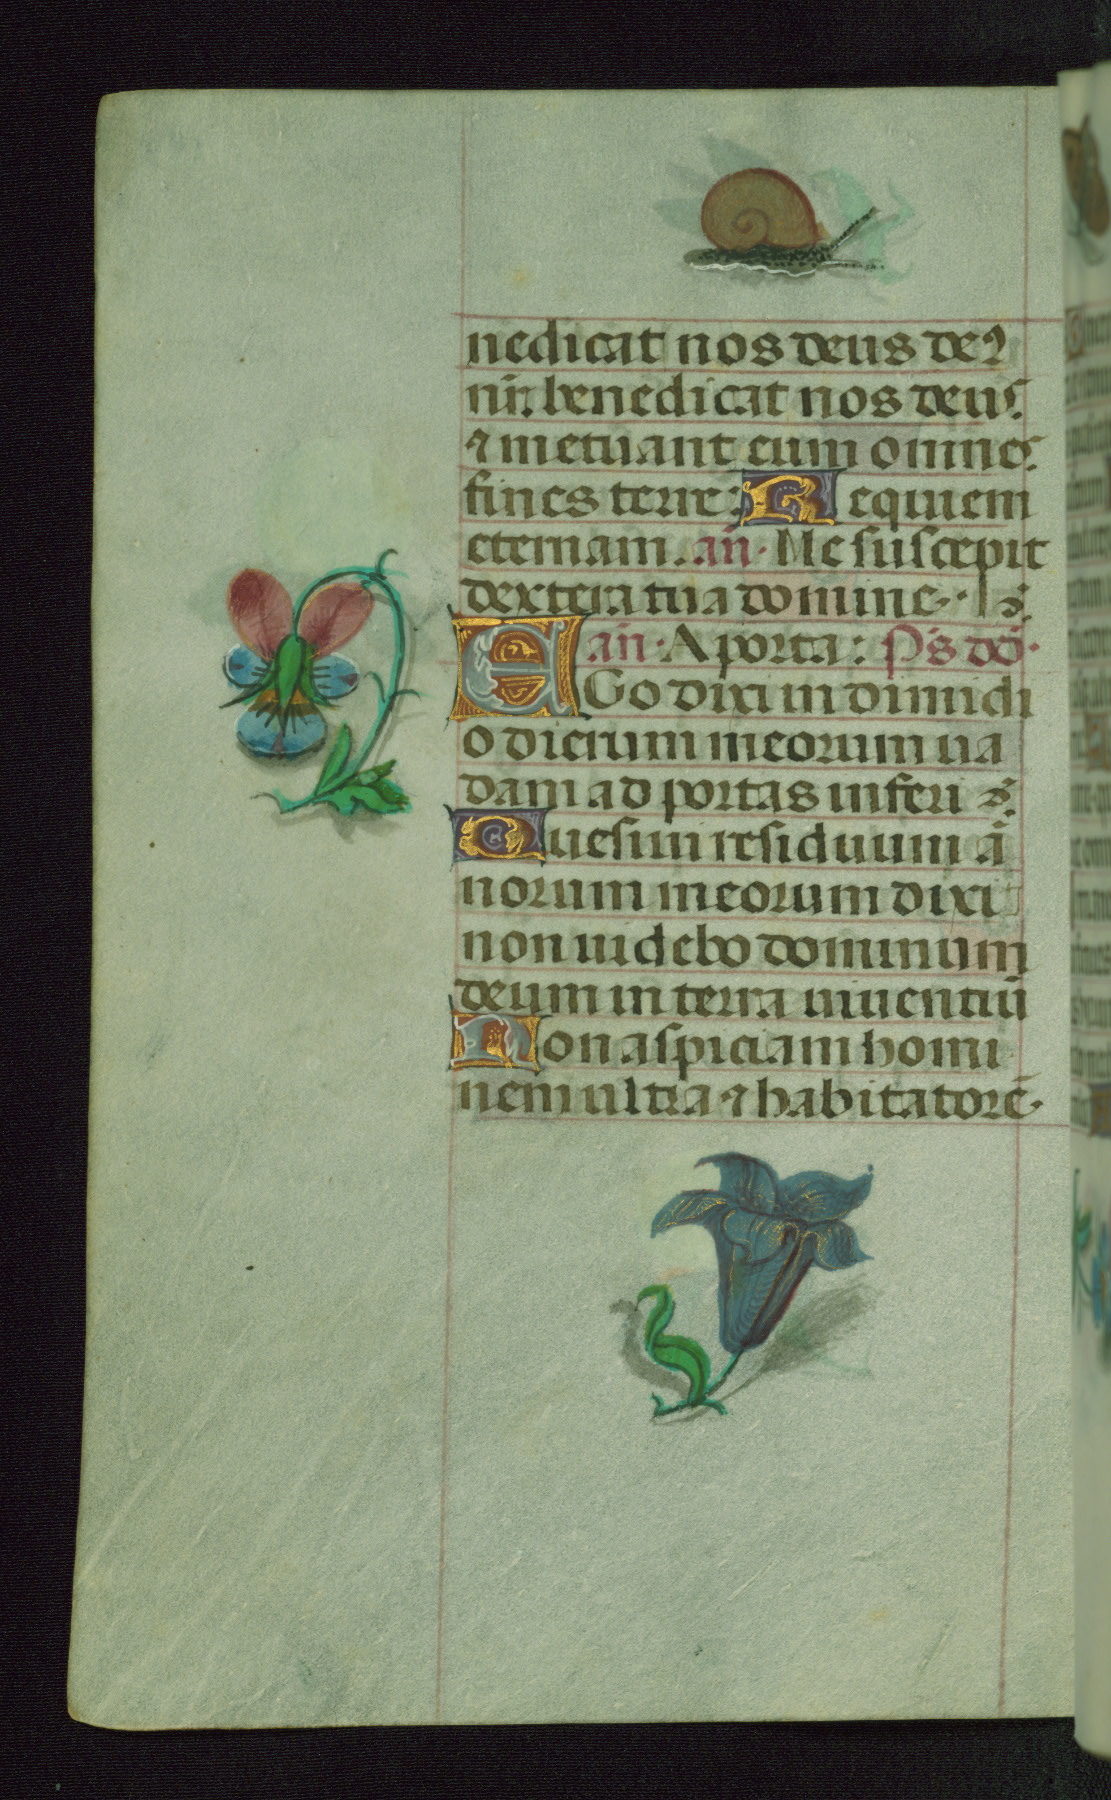 nedicat nos deus deꝰ
nr̄. benedicat nos deus.
⁊ metuant eum omnes
fines terre: Requiem
eternam. an̄. Me suscepit
dextera tua domine.
an̄. A porta: Ps dd̄.
EGo dixi in dimidi
o dierum meorum ua
dam ad portas inferi
Quesiui residuum ā
norum meorum dixi
non uidebo dominum
deum in terra uiuentiū
Non aspiciam homi
nem ultra ⁊ habitatorē.